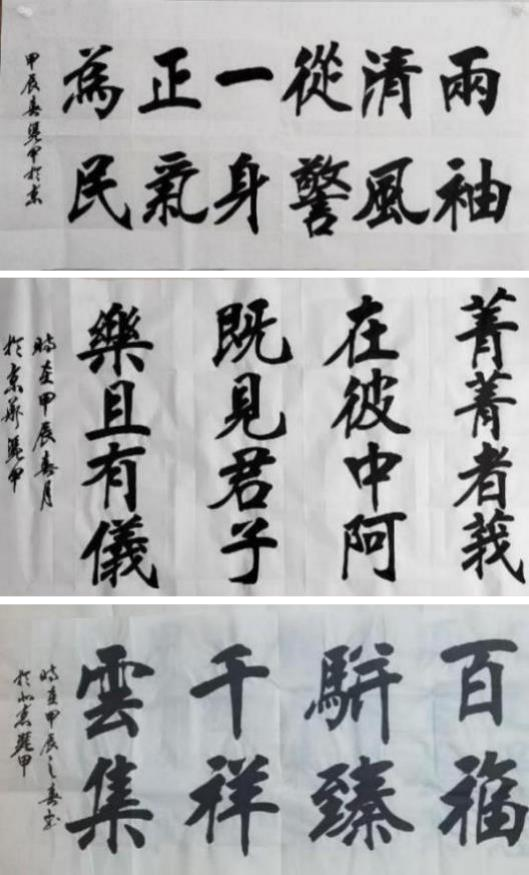 兩袖
清風
從警
一身
正氣
為民
甲辰春選甲於京
菁菁者莪
在彼中阿
既見君子
樂且有儀
時在甲辰春月
於京
百福
駢臻
千祥
雲集
時在甲辰之春書
於北京選甲